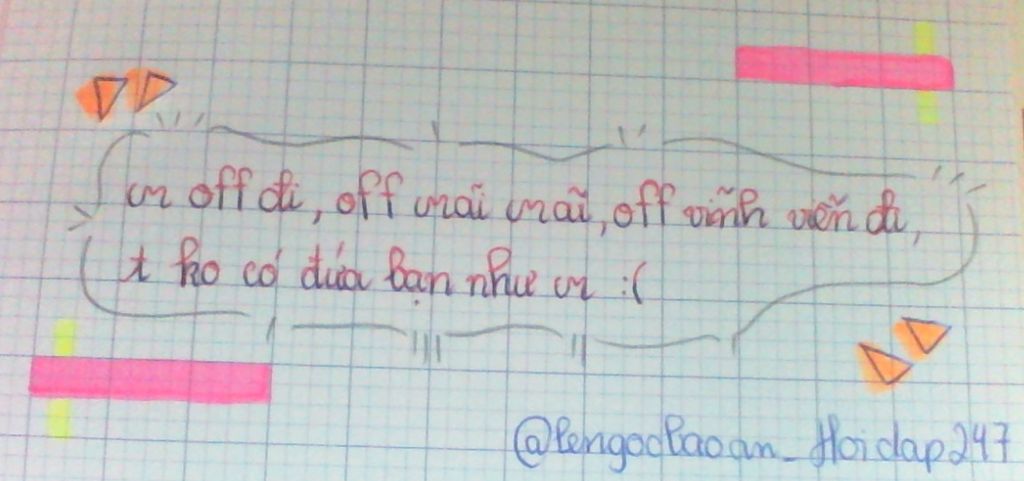 m off đi, off mãi mãi, off vĩnh viễn đi,
t ko có đứa bạn như m :(
@lengocbaoan_Hoidap247